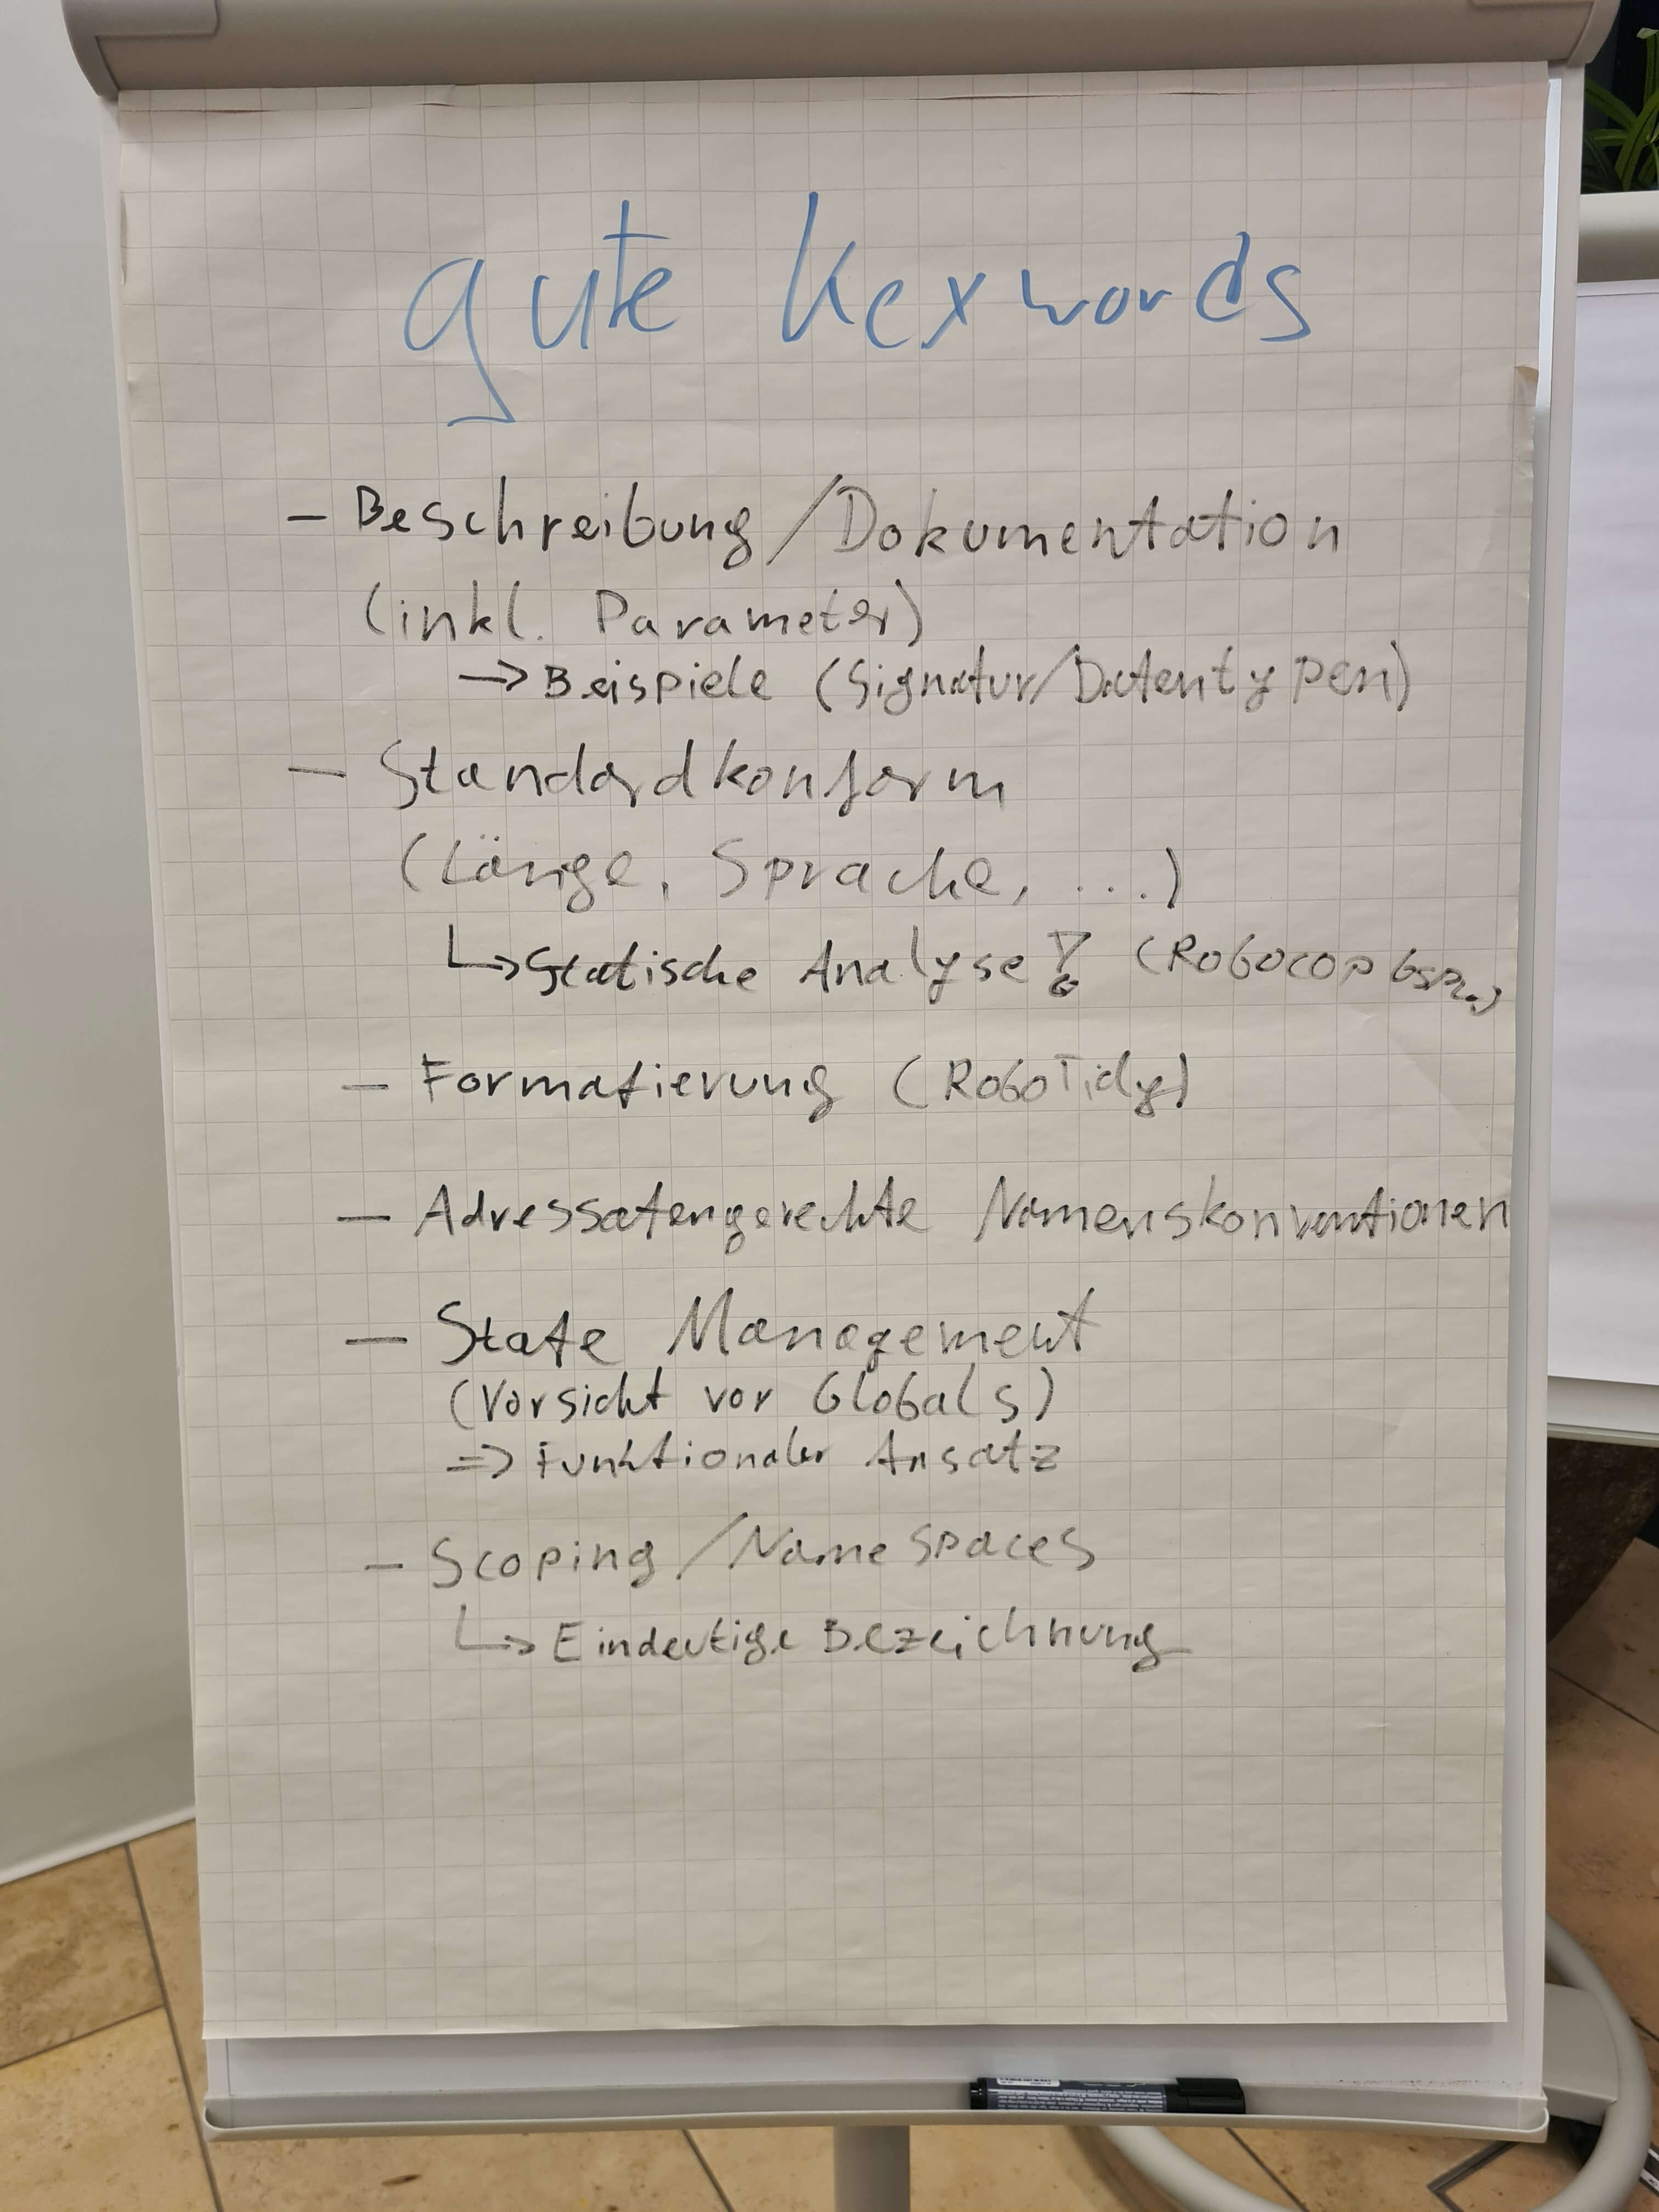 gute Keywords
- Beschreibung/Dokumentation
(inkl. Parameter)
→ Beispiele (Signatur/Datentypen)
- Standardkonform
(Länge, Sprache, ...)
↳ Statische Analyse! (Robocop bspw.)
- Formatierung (RoboTidy)
- Adressatengerechte Namenskonventionen
- State Management
(Vorsicht vor Globals)
=> Funktionaler Ansatz
- Scoping/Namespaces
↳ Eindeutige Bezeichnung